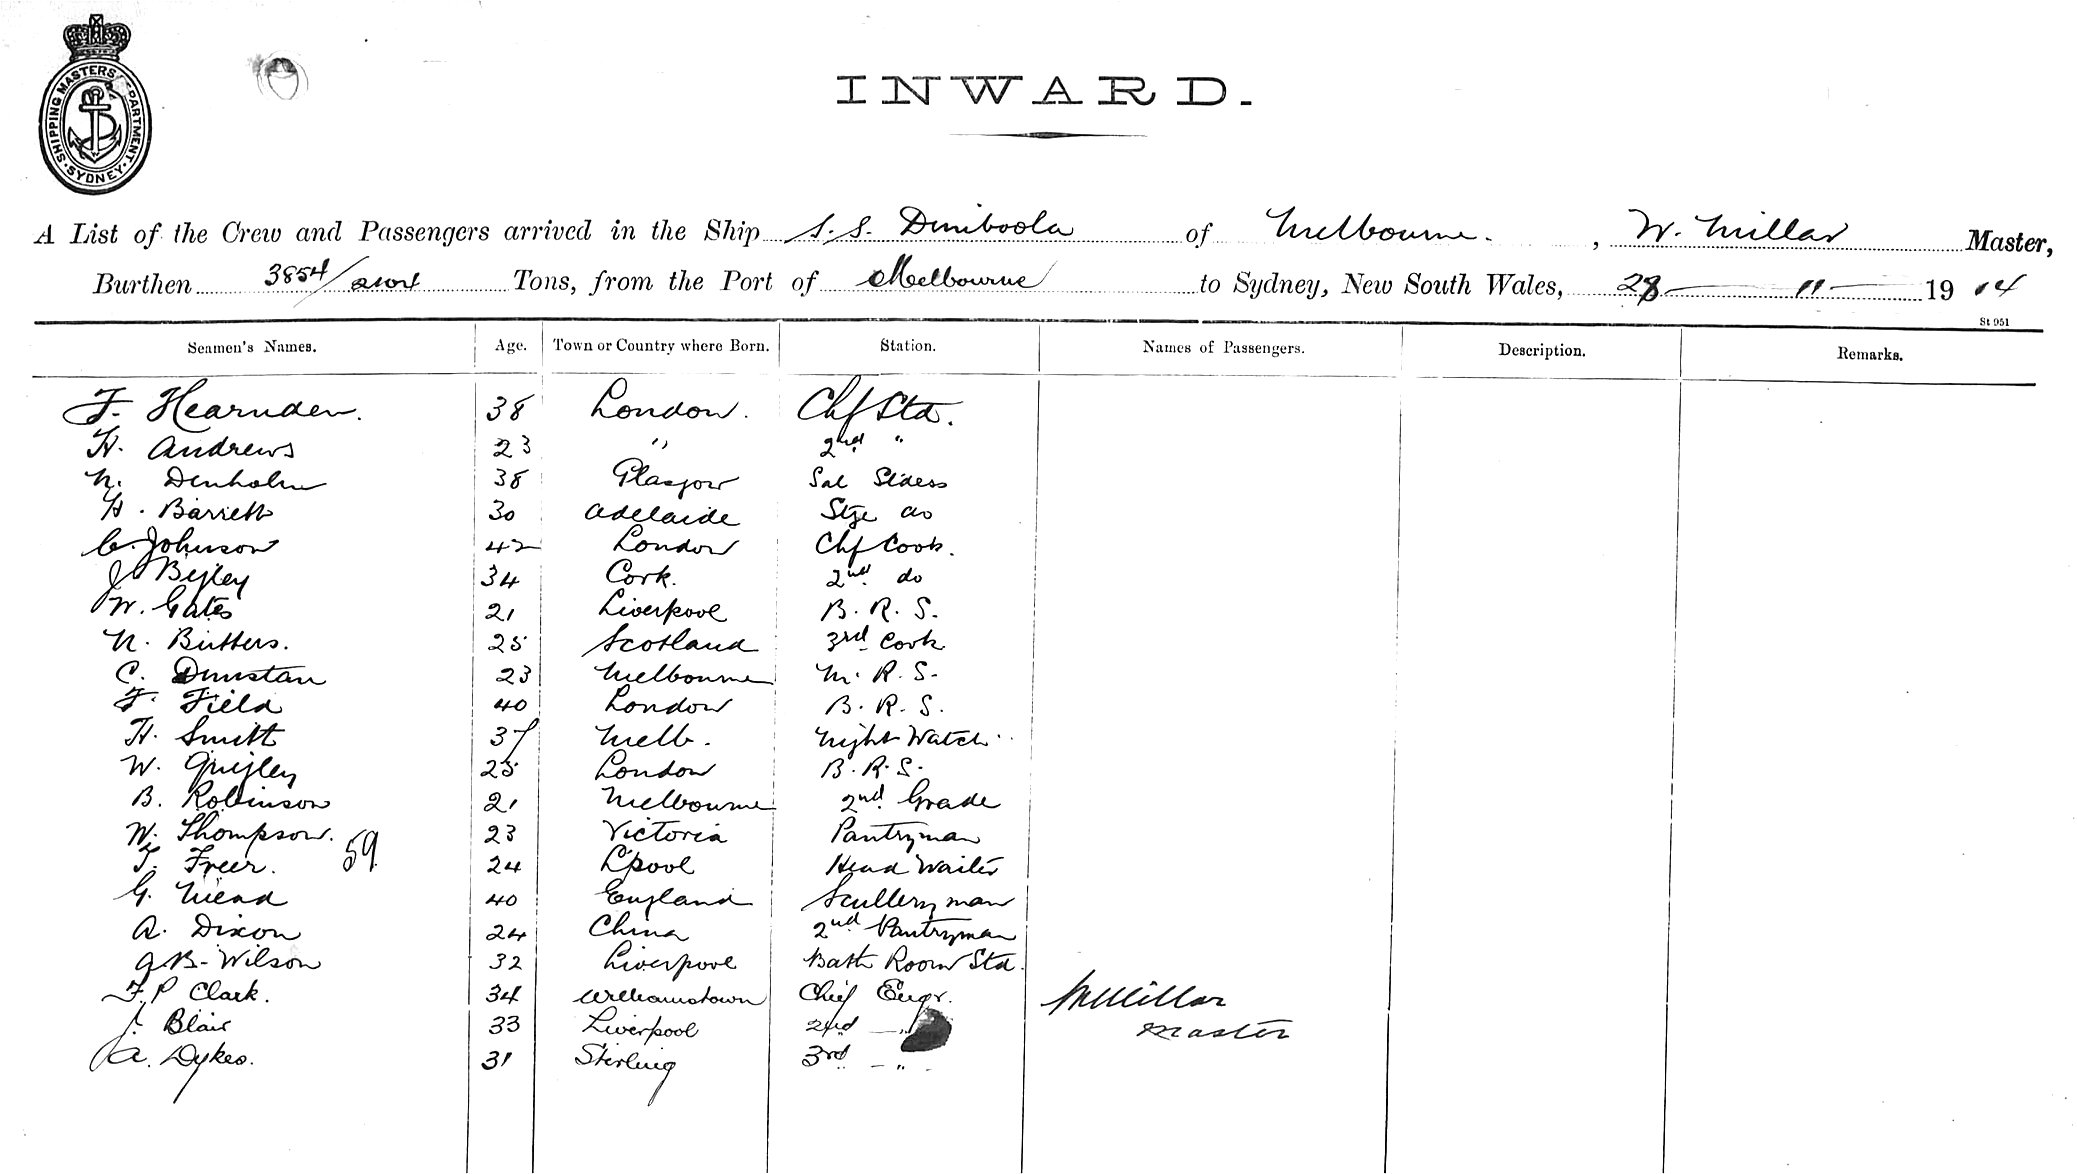 SHIPPING MASTERS DEPARTMENT. SYDNEY
INWARD.
A List of the Crew and Passengers arrived in the Ship S.S. Dimboola of Melbourne. , W. Millar Master,
Burthen 3854/ Tons, from the Port of Melbourne to Sydney, New South Wales, 28 — 11 — 1914
St 951
Seamen's Names. Age. Town or Country where Born. Station. Names of Passengers. Description. Remarks.
F. Hearnden. 38 London. Chf Std.
H. Andrews 23 " 2nd "
N. Denholm 38 Glasgow Sal Stdess
H. Barrett 30 Adelaide Stge do
C. Johnson 42 London Chf Cook.
J Begley 34 Cork. 2nd do
W. Gates 21 Liverpool B. R. S.
N. Butters. 25 Scotland 3rd Cook
C. Dunstan 23 Melbourne M. R. S.
F. Field 40 London B. R. S.
H. Smith 37 Melb. Night Watch
W. Quigley 25 London B. R. S.
B. Robinson 21 Melbourne 2nd Grade
W. Thompson. 23 Victoria Pantryman
59
T. Freer. 24 L'pool Head Waiter
G. Mead 40 England Sculleryman
A. Dixon 24 China 2nd Pantryman
A B. Wilson 32 Liverpool Bath Room Std.
F. P Clark. 34 Williamstown Chief Engr. W Millar
J. Blair 33 Liverpool 2nd — " Master
A. Dykes. 31 Stirling 3rd — "